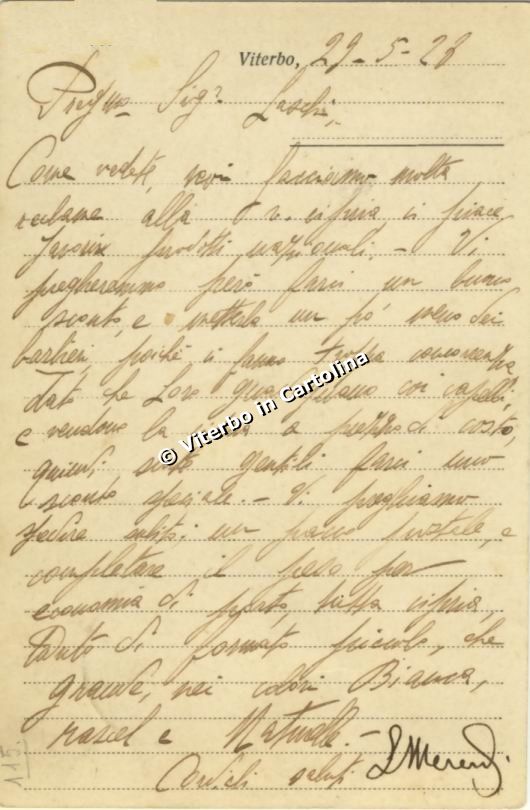 Viterbo, 29-5-28
Sig.r Laschi,
Come vedete, noi facciamo molta
reclame alla V. cipria, ci piace
favorire prodotti nazionali. - Vi
pregheremmo però farci un buono
sconto, e metterla un pò meno dei
barbieri, poichè ci fanno troppa concorrenza
dato che Loro guadagnano coi capelli,
e vendono la a prezzo di costo,
quindi, siate gentili farci uno
sconto speciale. - Vi preghiamo
spedire subito; un pacco postale, e
completare il peso per
economia di porto, tutta cipria,
tanto di formato piccolo, che
grande, nei colori Bianca,
rachel e Naturelle. -
Cordiali saluti
© Viterbo in Cartolina
115